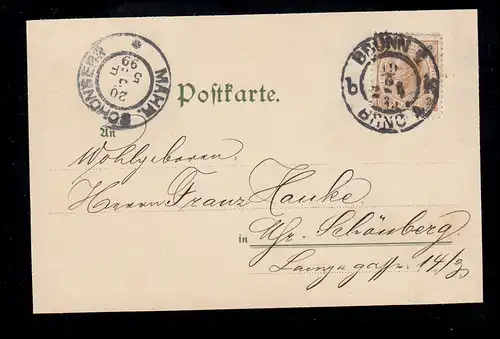 MÄHR. SCHÖNBERG
99
20
BRÜNN
b
BRNO
Postkarte.
An
Wohlgeboren
Herrn Franz Hauke
in Mr. Schönberg
Langegasse 14/g